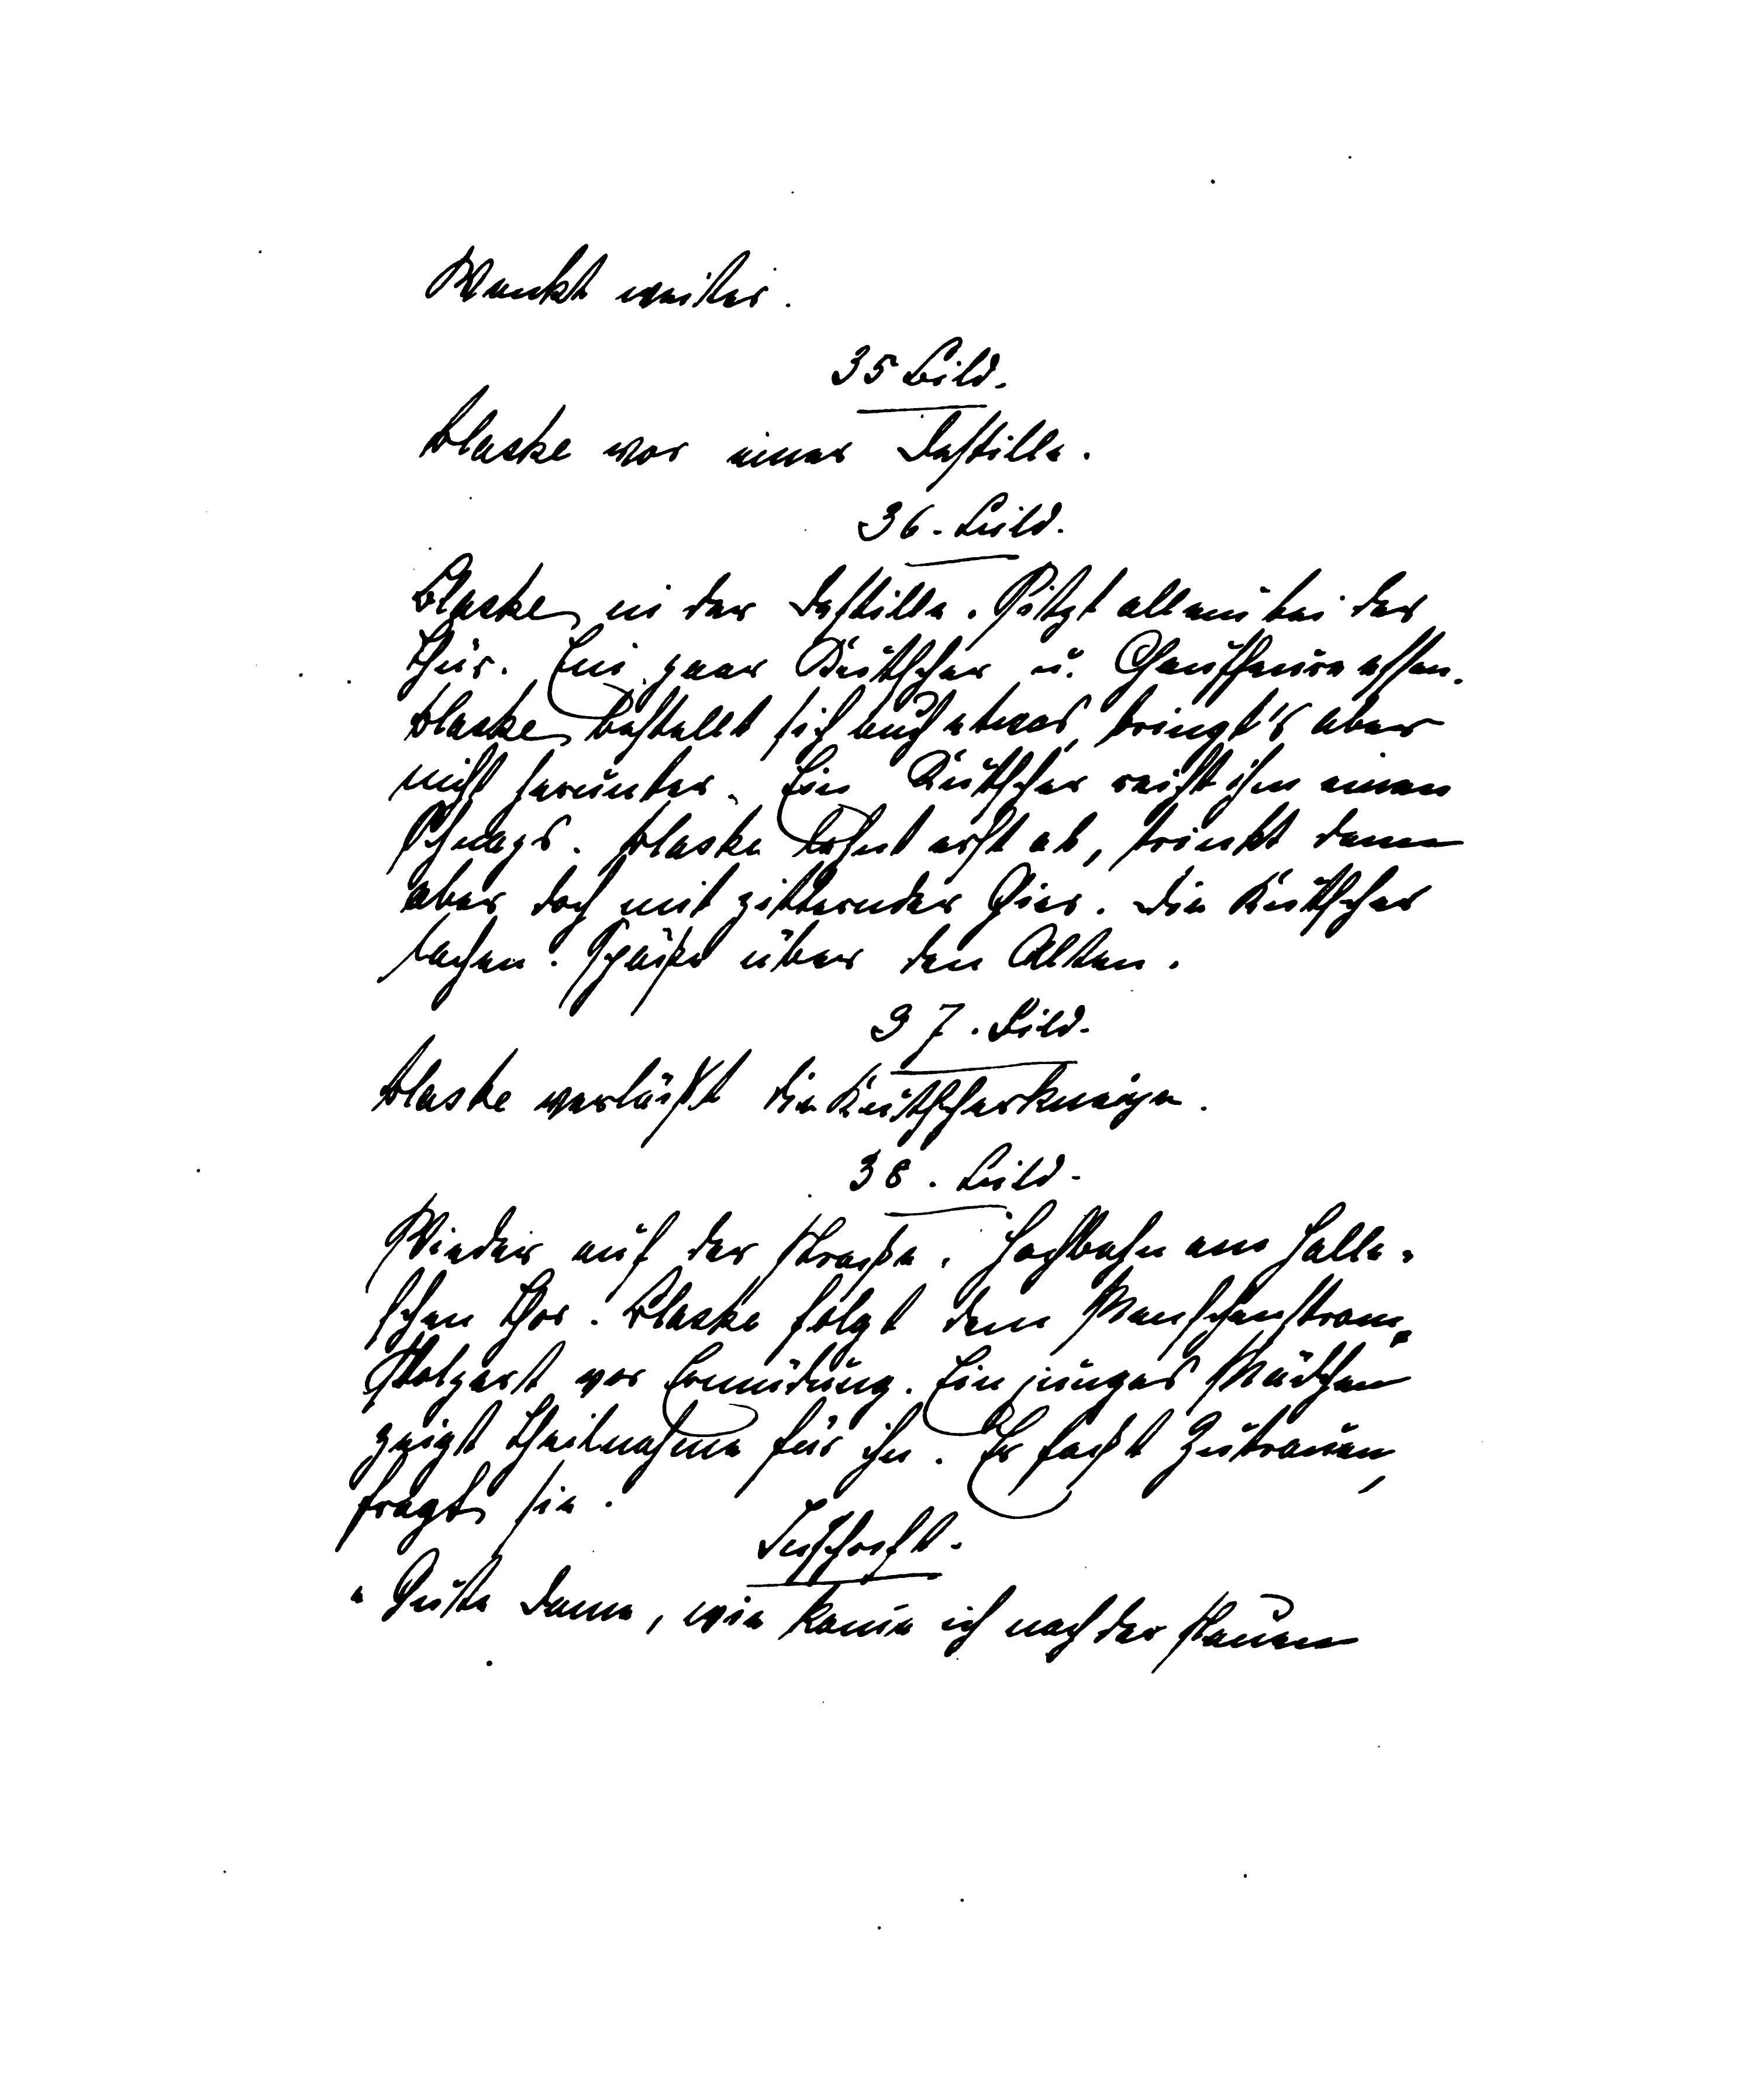 Wankt weiter.
35 Bild.
Blaske vor einer Destille.
36. Bild.
Blaske in der Destille. Sitzt allein bei der
Thür. Ein paar Kutscher u. Chauffeure essen.
Blaske bestellt sich auch etwas, bringt's aber
nicht herunter. Ein Kutscher reicht ihm einen
Schnaps. Blaske lehnt erst ab, trinkt dann
aber doch mit zitternder Gier. Die Kutscher
lachen. Späße über den Alten.
37. Bild.
Blaske verläßt die Kutscherkneipe.
38. Bild.
Wieder auf der Straße. Hochbahn am Halle-
schen Thor. Blaske folgt dem Menschenstrom.
Stolpert vor Ermüdung. Ein junges Mädchen
zeigt Theilnahme für ihn. Er faßt Zutrauen,
fragt sie.
Inschrift.
"Gute Dame, wie komm ich nach der